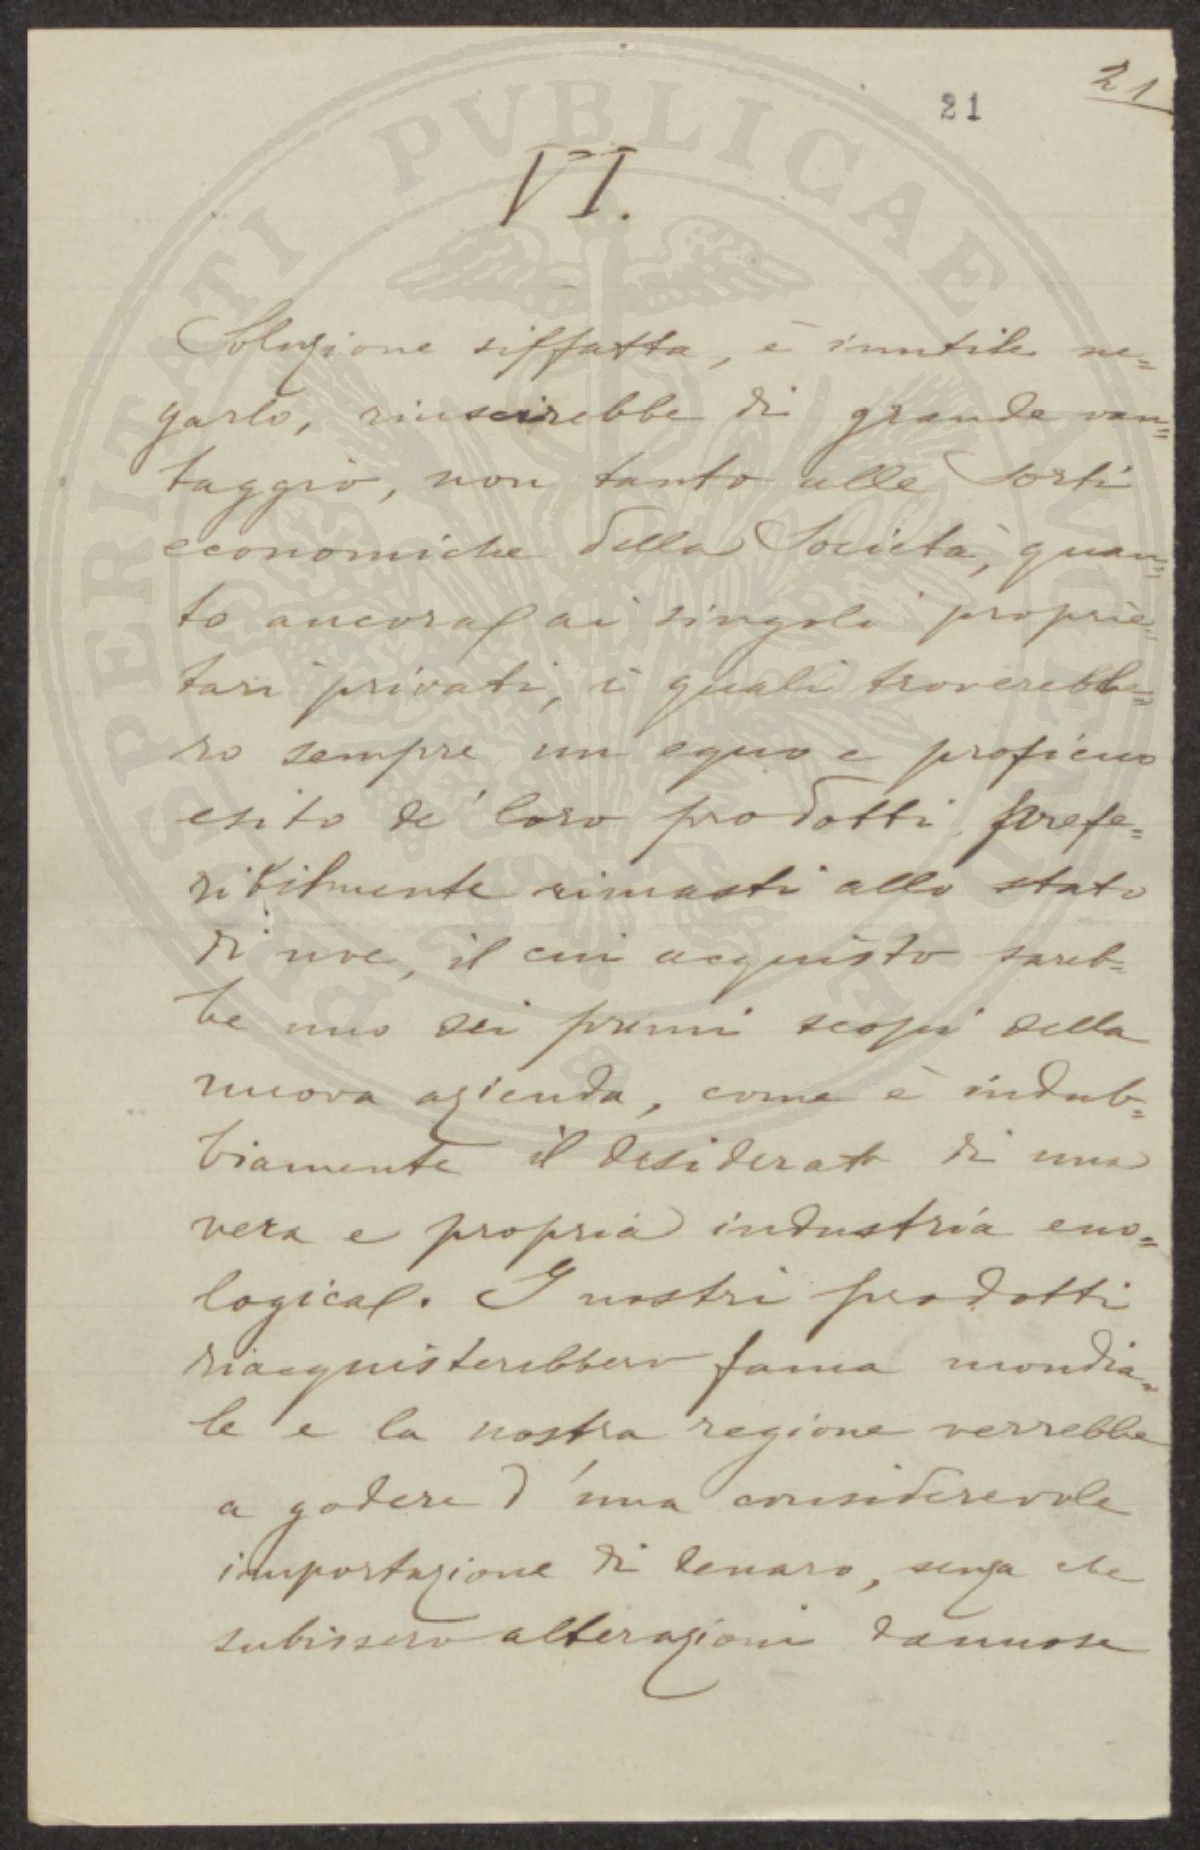 21
21
VI.
Soluzione siffatta, è inutile ne=
garlo, riuscirebbe di grande van=
taggio, non tanto alle sorti
economiche della Società, quan=
to ancora ai singoli proprie=
tari privati, i quali troverebbe=
ro sempre un equo e proficuo
esito de' loro prodotti prefe=
ribilmente rimasti allo stato
di uve, il cui acquisto sareb=
be uno dei primi scopi della
nuova azienda, come è indub=
biamente il desiderato di una
vera e propria industria eno=
logica. I nostri prodotti
riacquisterebbero fama mondia=
le e la nostra regione verrebbe
a godere d'una considerevole
importazione di denaro, senza che
subissero alterazioni dannose
PROSPERITATI PVBLICAE AVGENDAE